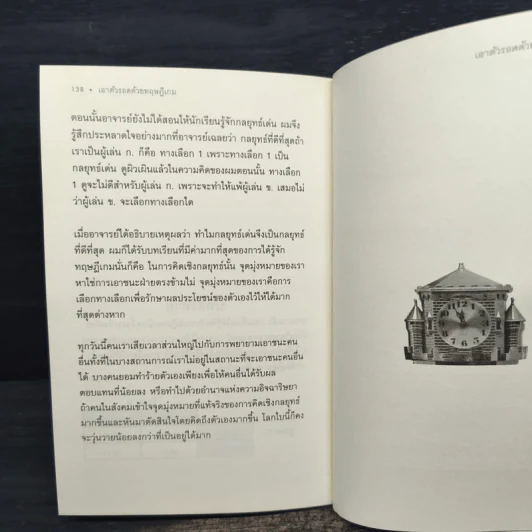 138 • เอาตัวรอดด้วยทฤษฎีเกม
เอาตัวรอดด้วย
ตอนนั้นอาจารย์ยังไม่ได้สอนให้นักเรียนรู้จักกลยุทธ์เด่น ผมจึง
รู้สึกประหลาดใจอย่างมากที่อาจารย์เฉลยว่า กลยุทธ์ที่ดีที่สุดถ้า
เราเป็นผู้เล่น ก. ก็คือ ทางเลือก 1 เพราะทางเลือก 1 เป็น
กลยุทธ์เด่น ดูผิวเผินแล้วในความคิดของผมตอนนั้น ทางเลือก
1 ดูจะไม่ดีสำหรับผู้เล่น ก. เพราะจะทำให้แพ้ผู้เล่น ข. เสมอไม่
ว่าผู้เล่น ข. จะเลือกทางเลือกใด
เมื่ออาจารย์ได้อธิบายเหตุผลว่า ทำไมกลยุทธ์เด่นจึงเป็นกลยุทธ์
ที่ดีที่สุด ผมก็ได้รับบทเรียนที่มีค่ามากที่สุดของการได้รู้จัก
ทฤษฎีเกมนั่นก็คือ ในการคิดเชิงกลยุทธ์นั้น จุดมุ่งหมายของเรา
หาใช่การเอาชนะฝ่ายตรงข้ามไม่ จุดมุ่งหมายของเราคือการ
เลือกทางเลือกเพื่อรักษาผลประโยชน์ของตัวเองไว้ให้ได้มาก
ที่สุดต่างหาก
ทุกวันนี้คนเราเสียเวลาส่วนใหญ่ไปกับการพยายามเอาชนะคน
อื่นทั้งที่ในบางสถานการณ์เราไม่อยู่ในสถานะที่จะเอาชนะคนอื่น
ได้ บางคนยอมทำร้ายตัวเองเพียงเพื่อให้คนอื่นได้รับผล
ตอบแทนที่น้อยลง หรือทำไปด้วยอำนาจแห่งความอิจฉาริษยา
ถ้าคนในสังคมเข้าใจจุดมุ่งหมายที่แท้จริงของการคิดเชิงกลยุทธ์
มากขึ้นและหันมาตัดสินใจโดยคิดถึงตัวเองมากขึ้น โลกใบนี้ก็คง
จะวุ่นวายน้อยลงกว่าที่เป็นอยู่ได้มาก